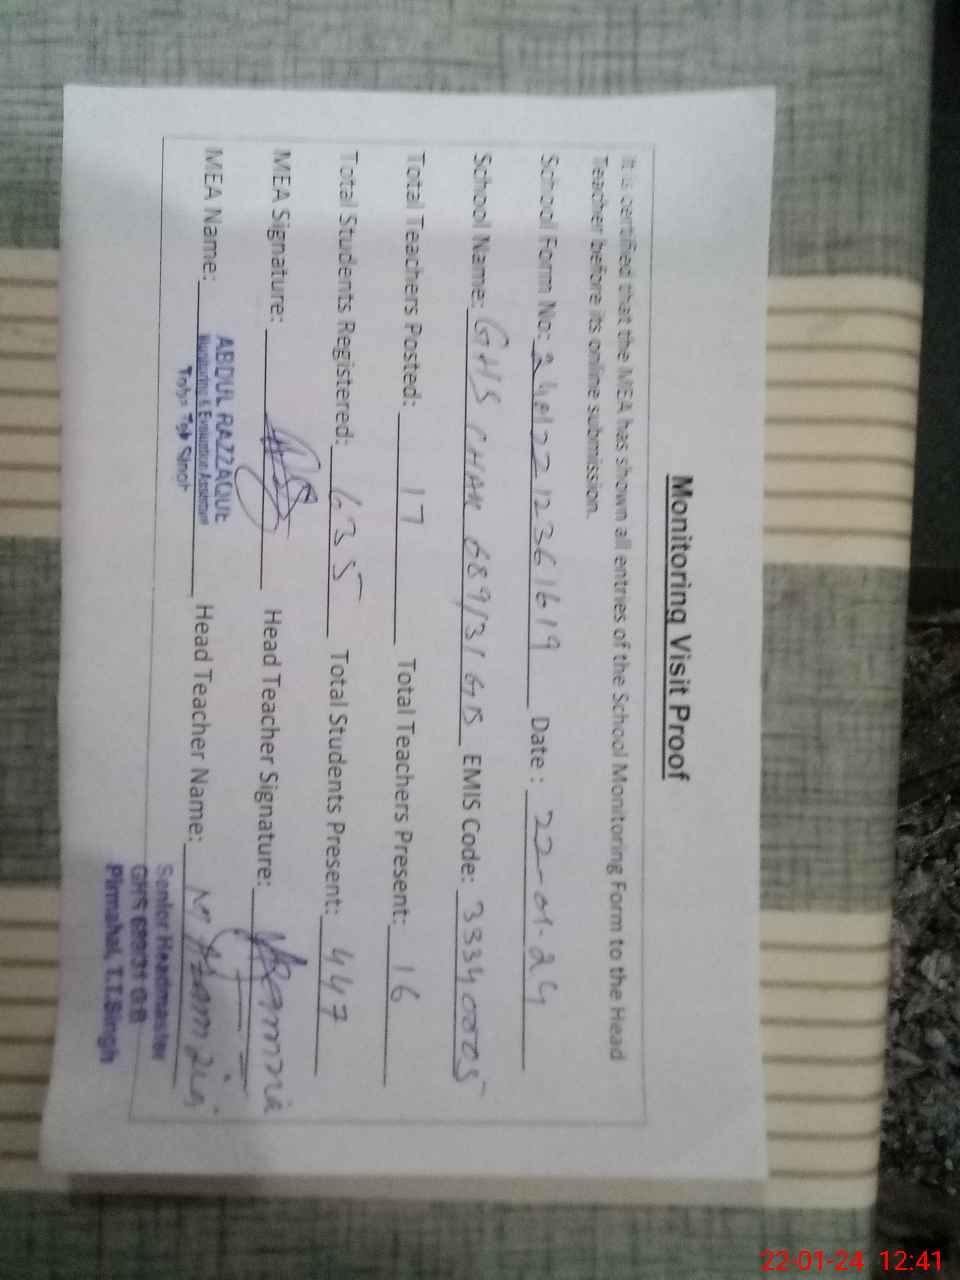 Monitoring Visit Proof
It is certified that the MEA has shown all entries of the School Monitoring Form to the Head
Teacher before its online submission.
School Form No: Date: 22-01-24
School Name: GHS CHAK 689/31 GB EMIS Code: 33340005
Total Teachers Posted: 17 Total Teachers Present: 16
Total Students Registered: 635 Total Students Present: 447
MEA Signature: Head Teacher Signature:
MEA Name: Head Teacher Name:
ABDUL RAZZAQUE
Monitoring & Evaluation Assistant
Toba Tek Singh
Senior Headmaster
GHS 689/31 GB
Pirmahal, T.T.Singh
22-01-24 12:41